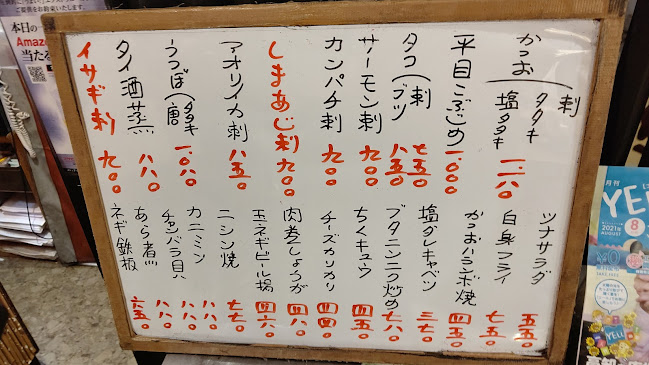 かつお 刺 タタキ 塩タタキ 一、一八〇
平目こぶじめ 一、〇〇〇
タコ 刺 七五〇 ブツ 八五〇
サーモン刺 九〇〇
カンパチ刺 九〇〇
しまあじ刺 九〇〇
アオリイカ刺 八五〇
うつぼ タタキ 唐 一、〇八〇
タイ酒蒸 八八〇
イサギ刺 九〇〇
ツナサラダ 五五〇
白身フライ 七五〇
かつおハランボ焼 四五〇
塩ダレキャベツ 三七〇
ブタニンニク炒め 七八〇
ちくキュウ 四五〇
チーズカリカリ 四四〇
肉巻しょうが 四八〇
玉ネギビール揚 四六〇
ニシン焼 七七〇
カニミソ 八八〇
チャンバラ貝 八八〇
あら煮 八八〇
ネギ鉄板 六五〇
本日の
Amaz
当たる
月刊
YEL
2021年
8
AUGUST